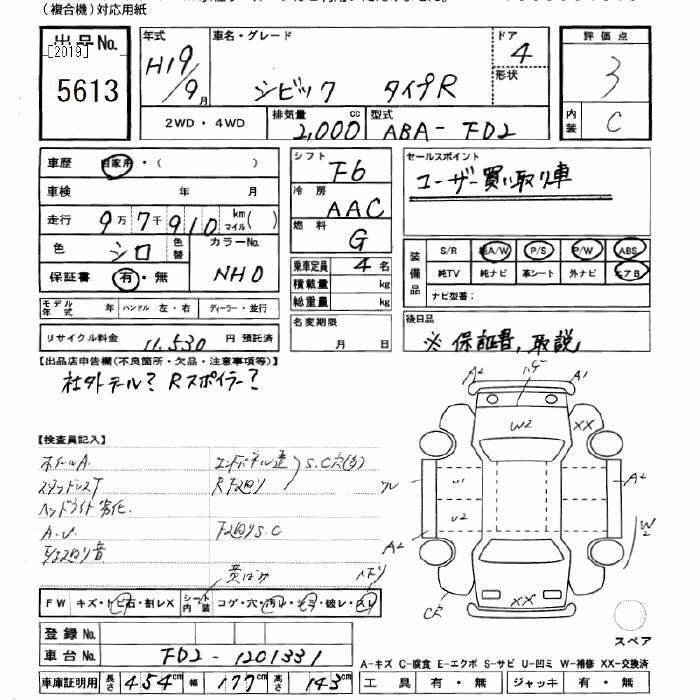 (複合機)対応用紙
出品No.
[2019]
5613
年式
H19/9月
車名・グレード
シビック タイプR
ドア
4
形状
評価点
3
内装
C
2WD・4WD
排気量
2,000cc
型式
ABA-FD2
車歴 自家用・( )
車検 年 月
走行 9万7千910 km マイル( )
色 シロ 色替
カラーNo.
NH0
保証書 有・無
モデル年式 年 ハンドル 左・右 ディーラー・並行
リサイクル料金 11,530 円 預託済
シフト
F6
冷房
AAC
燃料
G
乗車定員 4 名
積載量 kg
総重量 kg
名変期限
月 日
セールスポイント
ユーザー買い取り車
装備品
S/R 純A/W P/S P/W ABS
純TV 純ナビ 革シート 外ナビ エアB
ナビ型番:
後日品
※ 保証書、取説
【出品店申告欄(不良箇所・欠品・注意事項等)】
社外テール? Rスポイラー?
【検査員記入】
ホイールA
スタッドレスT
ヘッドライト劣化
A.U
エンドパネル歪
S.C穴(多)
R下廻り
下廻りS.C
A2
A1
W2
XX
A2
U1
U2
A2
W2
XX
FW キズ・トビ石・割レX
シート内装 コゲ・穴・汚レ・シミ・破レ・スレ
登録No.
車台No. FD2-1201331
車庫証明用 長さ 454cm 幅 177cm 高さ 143cm
スペア
A-キズ C-腐食 E-エクボ S-サビ U-凹ミ W-補修 XX-交換済
工具 有・無 ジャッキ 有・無